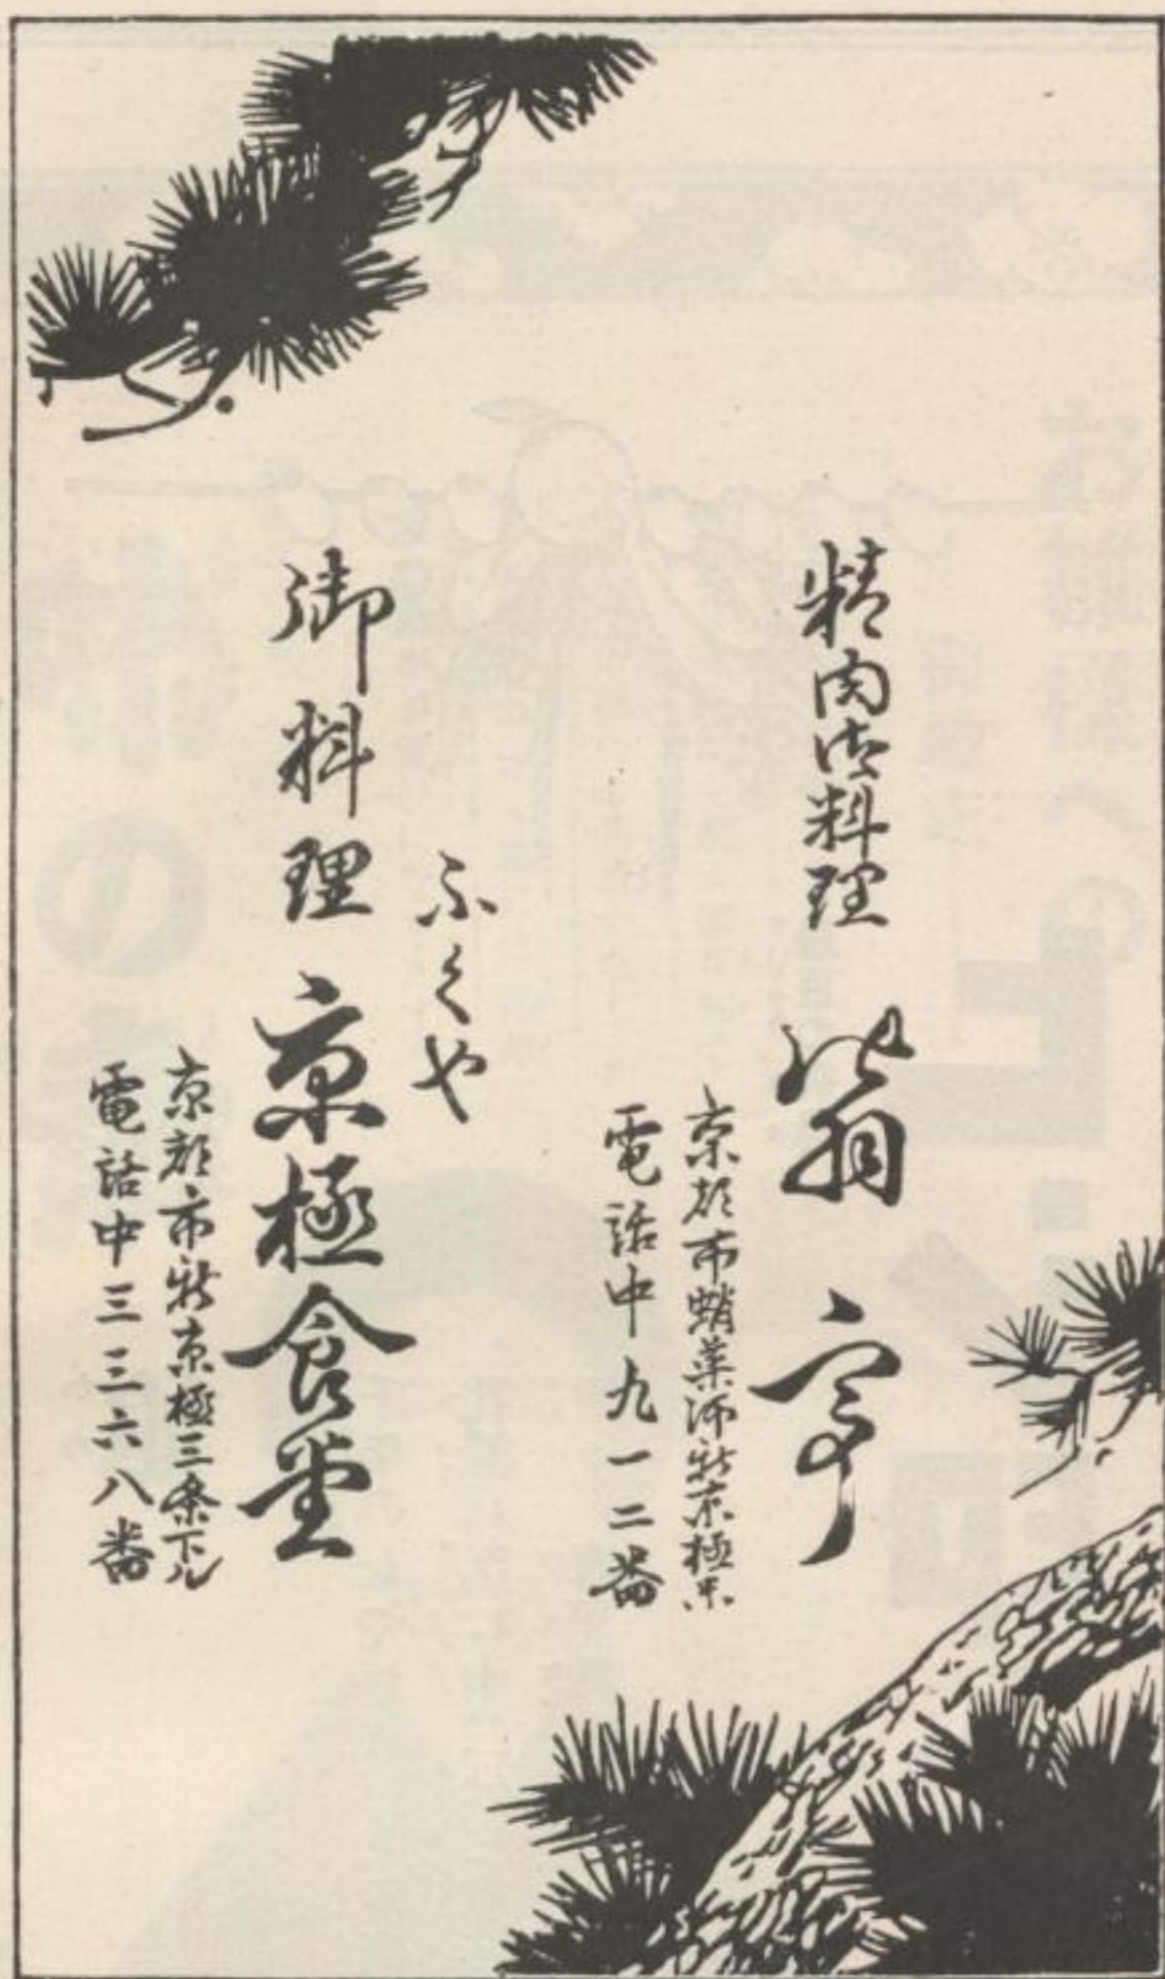 精肉御料理
翁亭
京都市蛸薬師新京極東
電話中九一二番
ふくや
御料理
京極食堂
京都市新京極三条下ル
電話中三三六八番